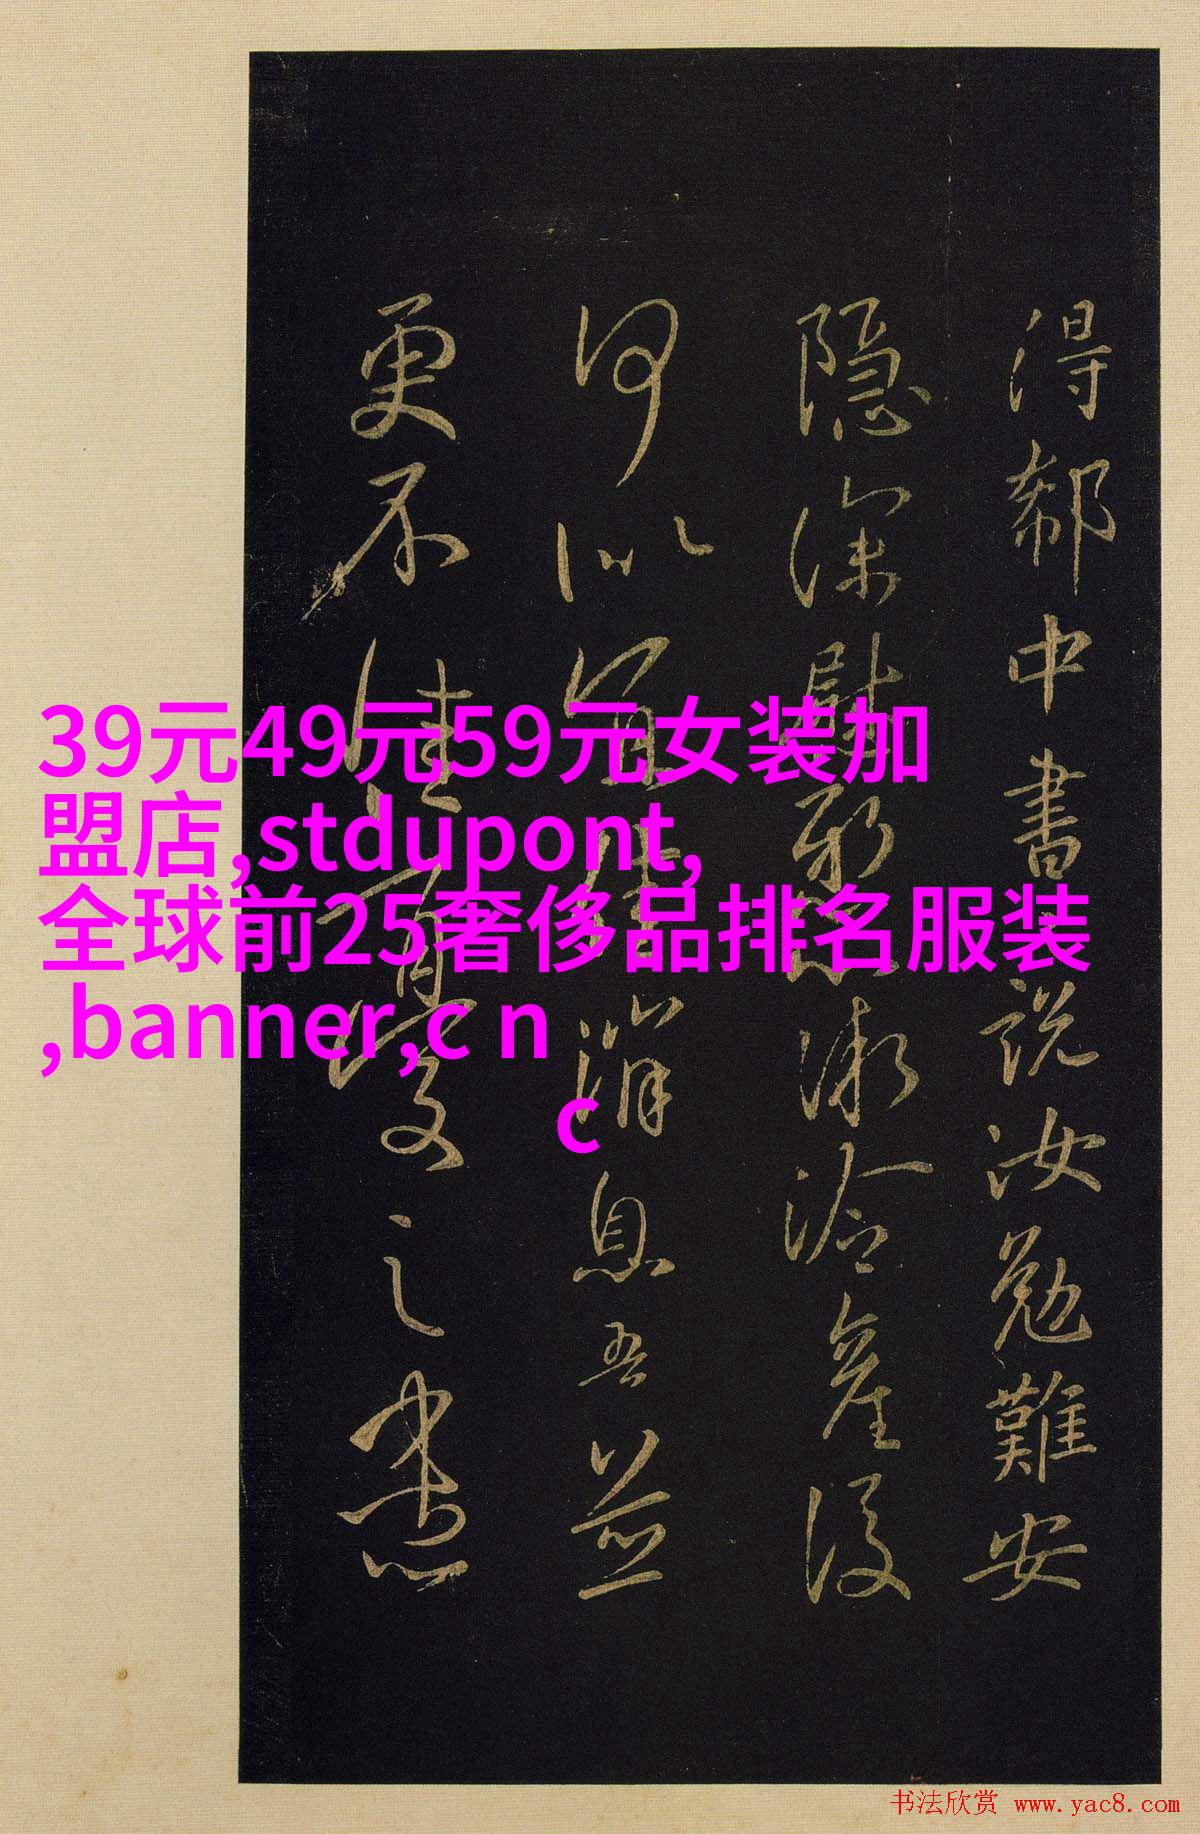 得郗中書說汝勉難安
隱深慰耶心漸冷產後
何以宜佳消息吾並
更不佳之
39元49元59元女装加
盟店,stdupont,
全球前25奢侈品排名服装
,banner,c n
c
书法欣赏 www.yac8.com